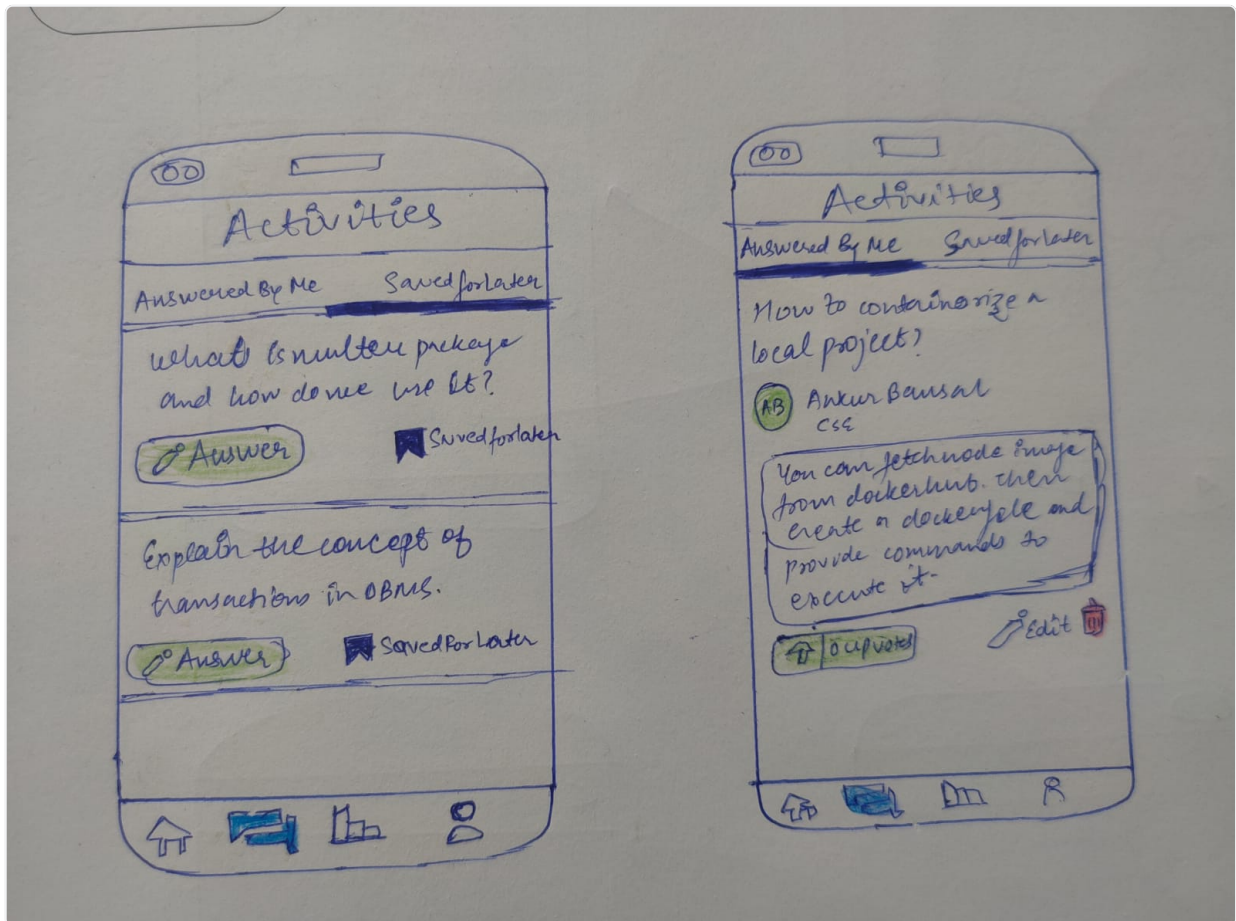 Activities
Answered By Me Saved for Later
What is multer package
and how do we use it?
Answer Saved for later
Explain the concept of
transactions in DBMS.
Answer Saved For Later
Activities
Answered By Me Saved for Later
How to containorize a
local project?
AB Ankur Bansal
CSE
You can fetch node image
from dockerhub. then
create a dockerfile and
provide commands to
execute it.
upvotes Edit